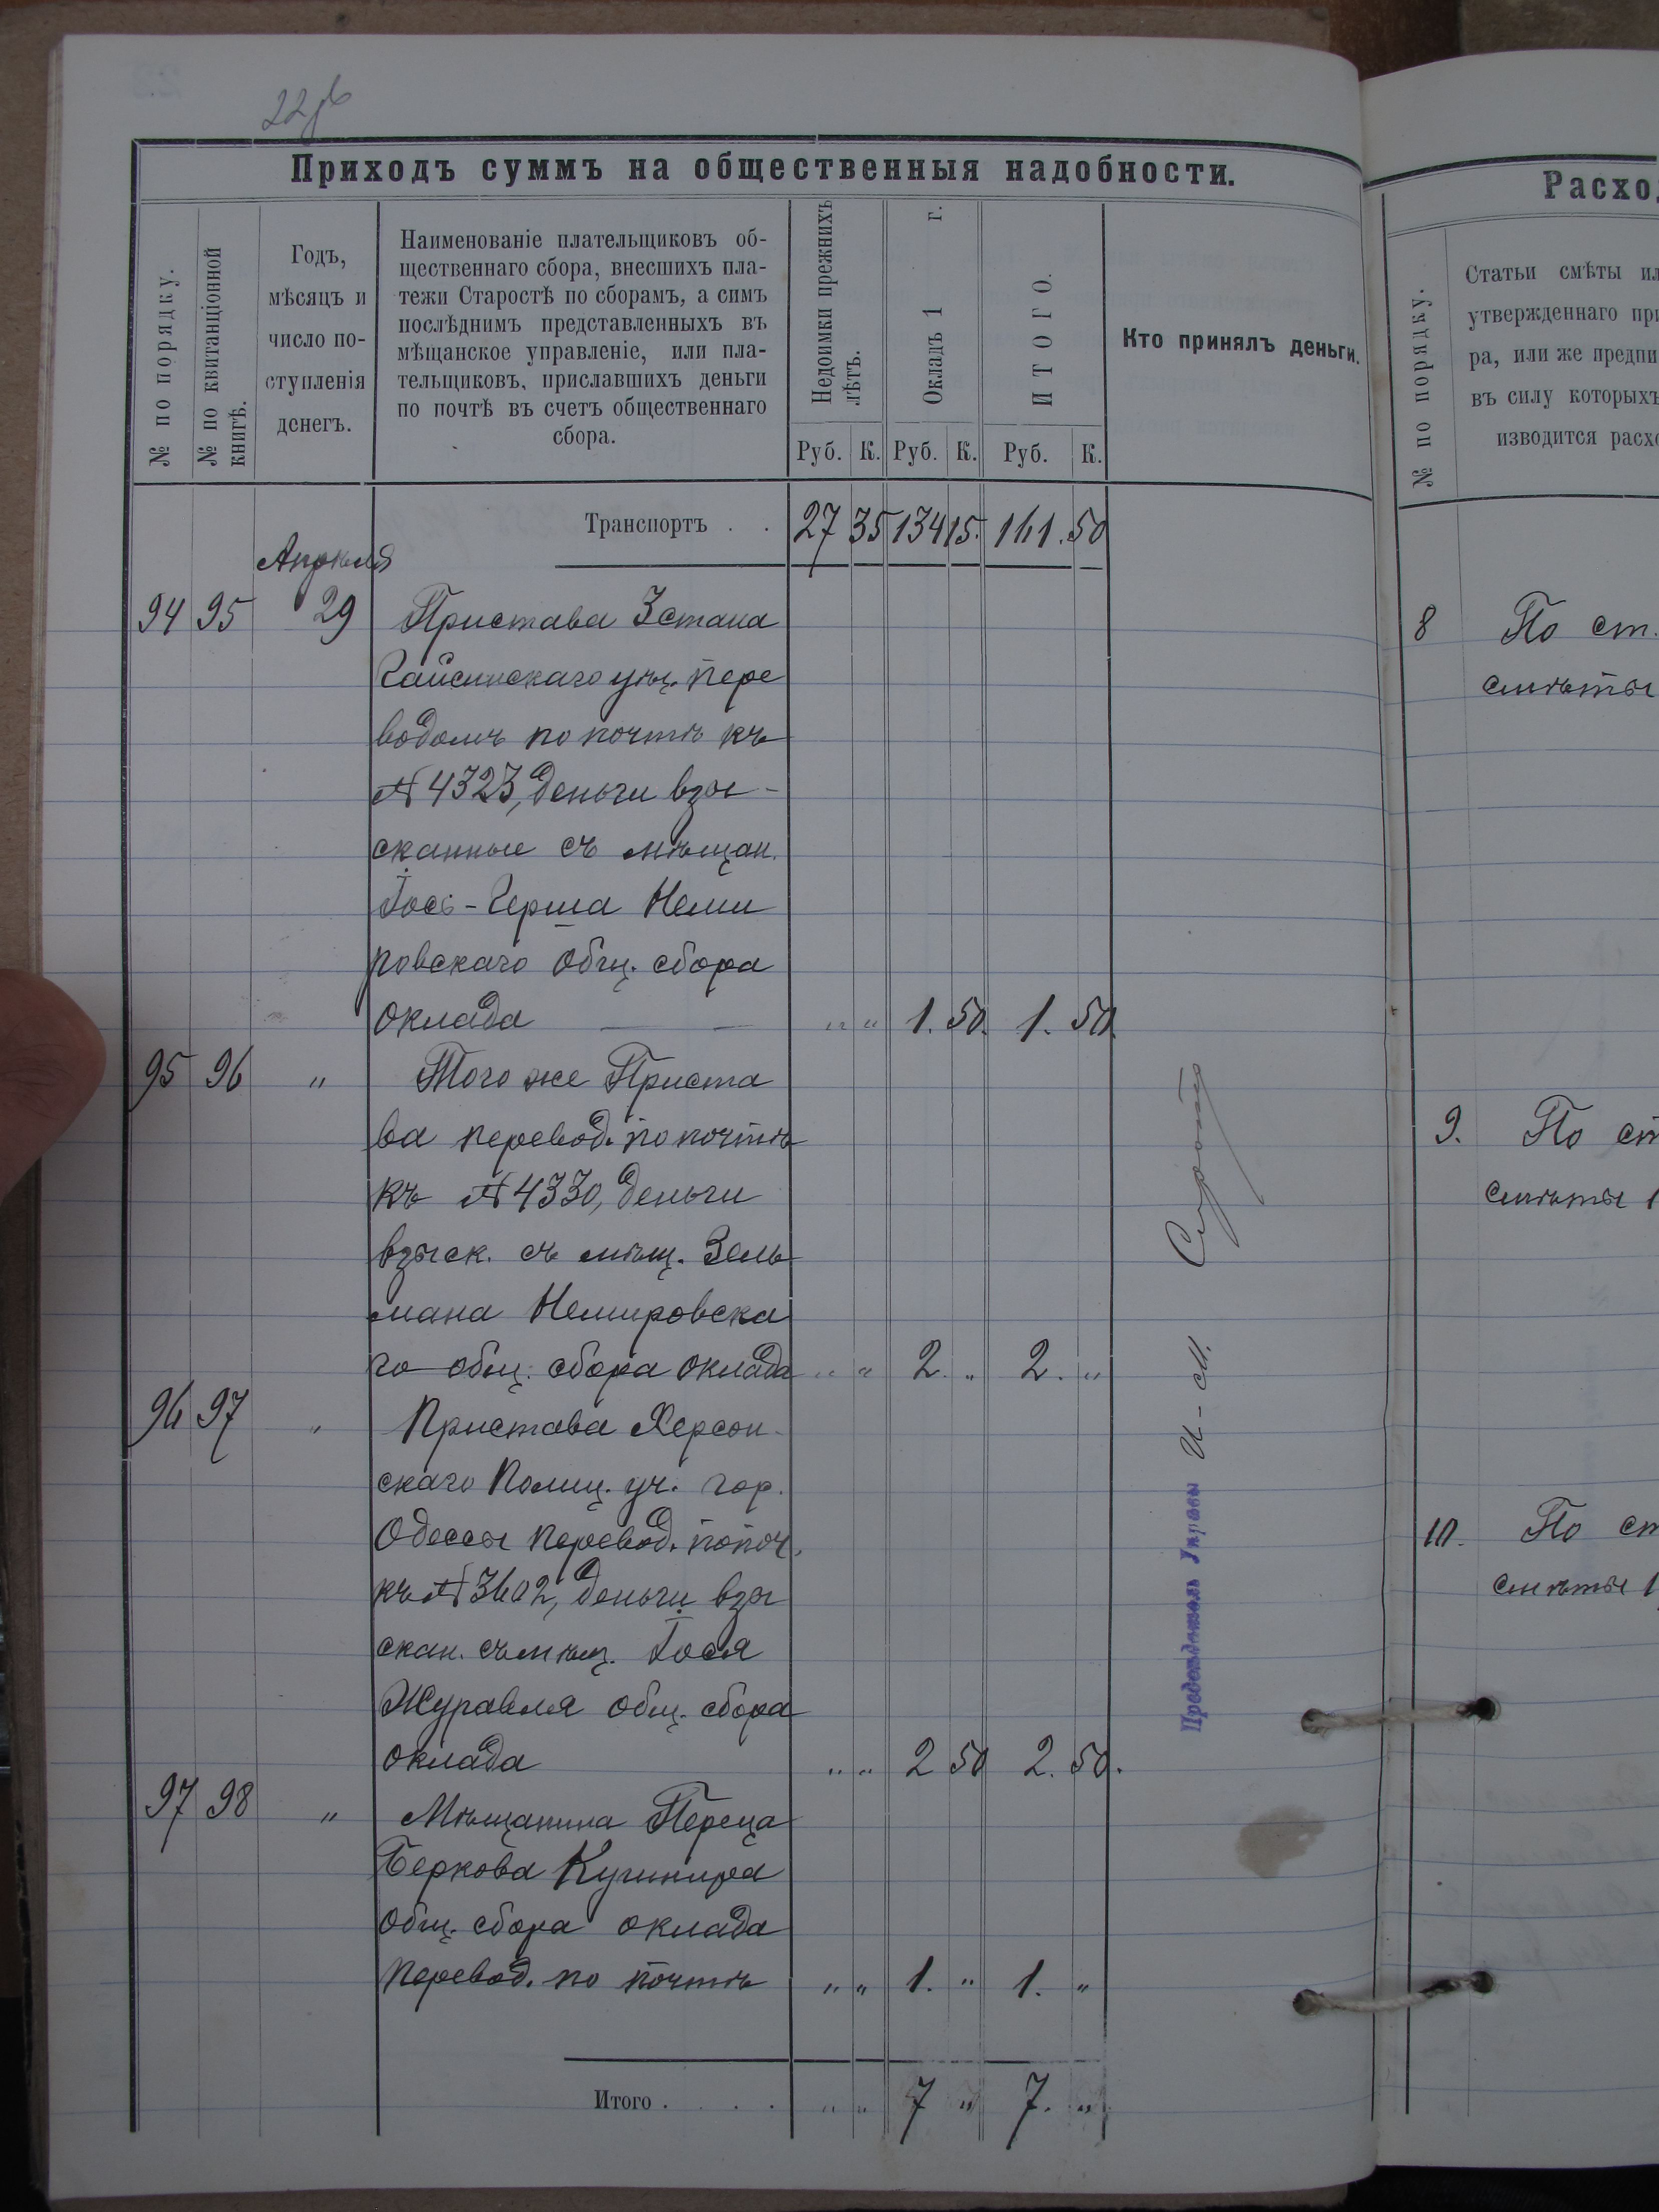 22об
Приходъ суммъ на общественныя надобности.
№ по порядку.
№ по квитанціонной
книгѣ.
Годъ,
мѣсяцъ и
число по-
ступленія
денегъ.
Наименованіе плательщиковъ об-
щественнаго сбора, внесшихъ пла-
тежи Старостѣ по сборамъ, а симъ
послѣднимъ представленныхъ въ
мѣщанское управленіе, или пла-
тельщиковъ, приславшихъ деньги
по почтѣ въ счетъ общественнаго
сбора.
Недоимки прежнихъ
лѣтъ.
Окладъ 1 г.
ИТОГО.
Кто принялъ деньги.
Руб. К. Руб. К. Руб. К.
Транспортъ . . 27 35 134 15. 161. 50
Апреля
94 95 29 Пристава 3 стана
Гайсинскаго уѣз. пере
водомъ по почтѣ къ
№ 4323, деньги взы-
сканные съ мѣщан.
Іось-Герша Неми
ровскаго общ. сбора
оклада — — " " 1. 50. 1. 50.
95 96 " Того же Приста
ва перевод. по почтѣ
къ № 4330, деньги
взыск. съ мѣщ. Зель
мана Немировска
го общ. сбора оклада " " 2. " 2. "
96 97 " Пристава Херсон-
скаго Полиц. уч. гор.
Одессы перевод. по поч.
къ № 3602, деньги взы
скан. съ мѣщ. Іося
Журавля общ. сбора
оклада " " 2 50 2. 50.
97 98 " Мѣщанина Переца
Беркова Кушнира
общ. сбора оклада
перевод. по почтѣ " " 1. " 1. "
Итого . . . . " " 7 " 7. "
Предсѣдатель Управы И-М.
Расхо
№ по порядку.
Статьи смѣты ил
утвержденнаго при
ра, или же предпи
въ силу которыхъ
изводится расхо
8 По ст.
смѣты
9. По ст
смѣты 1
10. По ст
смѣты 1